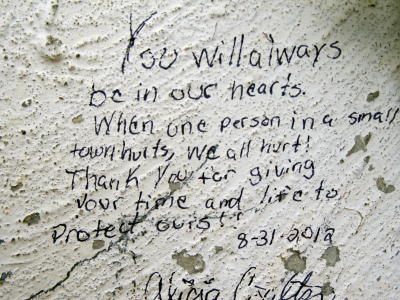 You will always
be in our hearts.
When one person in a small
town hurts, we all hurt!
Thank You for giving
your time and life to
Protect ours!!
8-31-2012